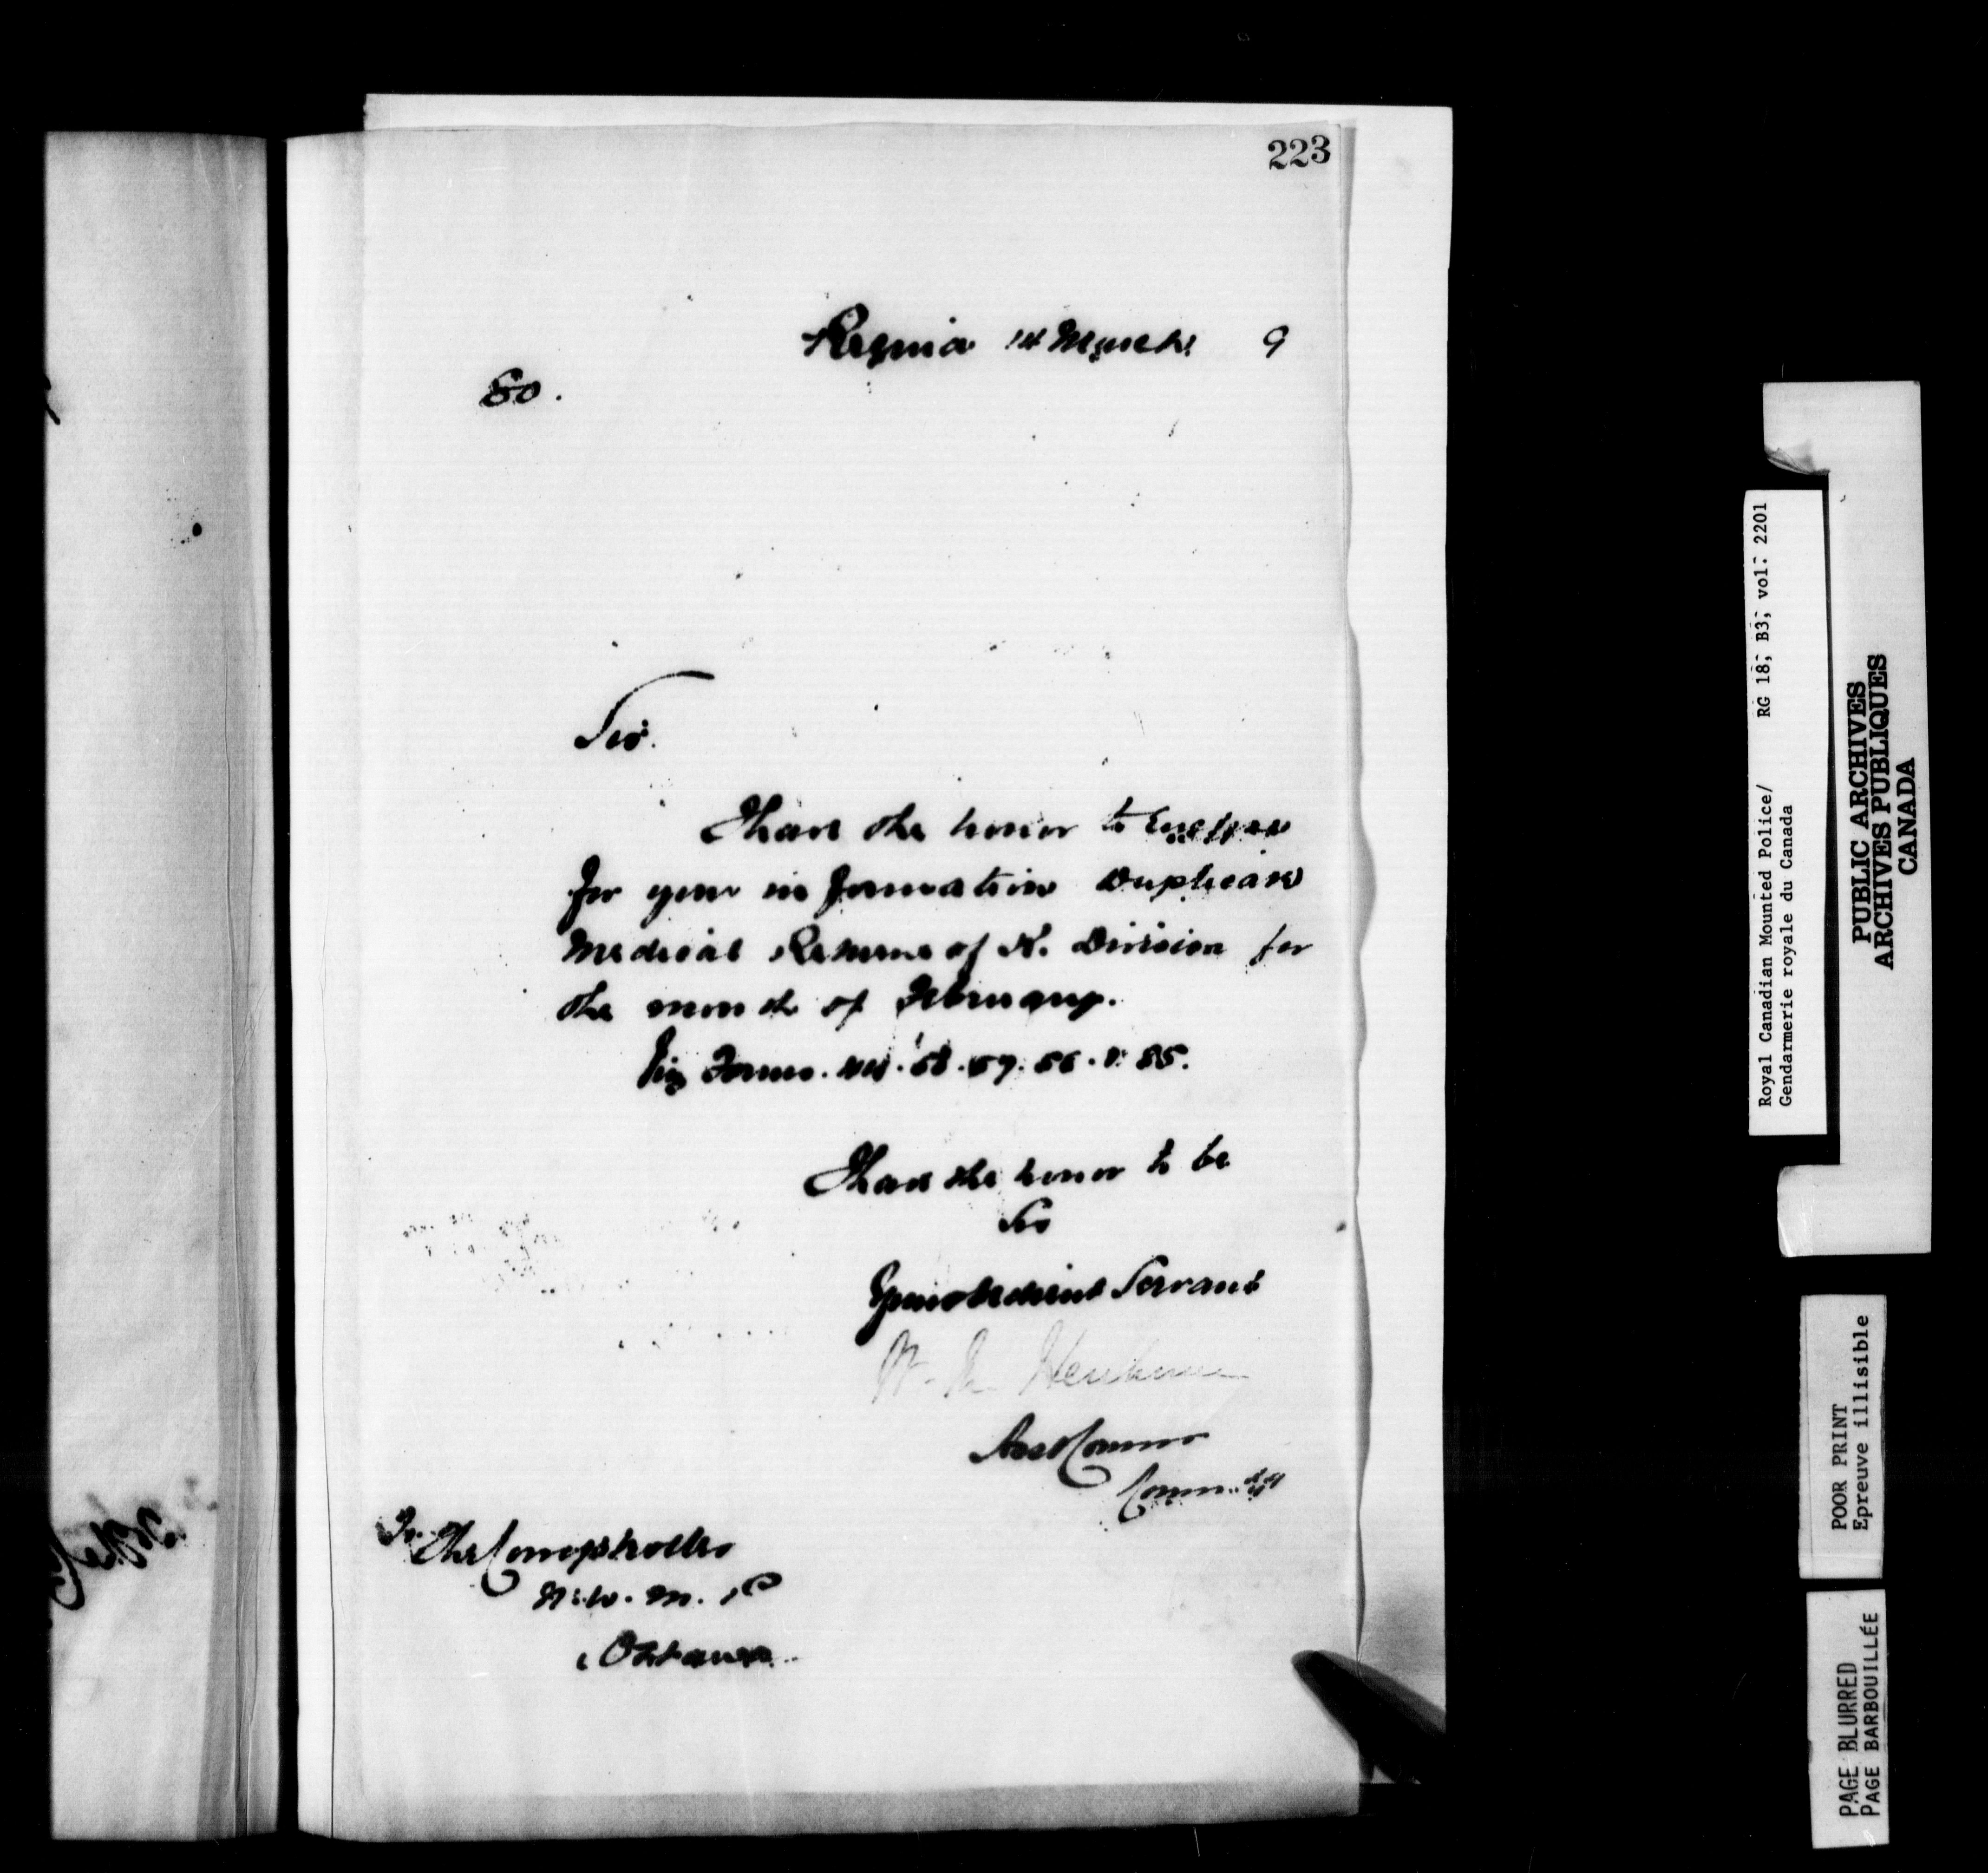 223
Regina 1st March 9
80.
Sir.
I have the honor to Enclose
for your information Duplicate
Medical Returns of K. Division for
the month of February.
Viz Forms. Nos. 58. 57. 56. & 55.
I have the honor to be
Sir
Your obedient Servant
Asst Commr
Commdg
To The Comptroller
N.W.M.P
Ottawa.
Royal Canadian Mounted Police/ RG 18, B3, vol: 2201
Gendarmerie royale du Canada
PUBLIC ARCHIVES
ARCHIVES PUBLIQUES
CANADA
POOR PRINT
Epreuve illisible
PAGE BLURRED
PAGE BARBOUILLÉE